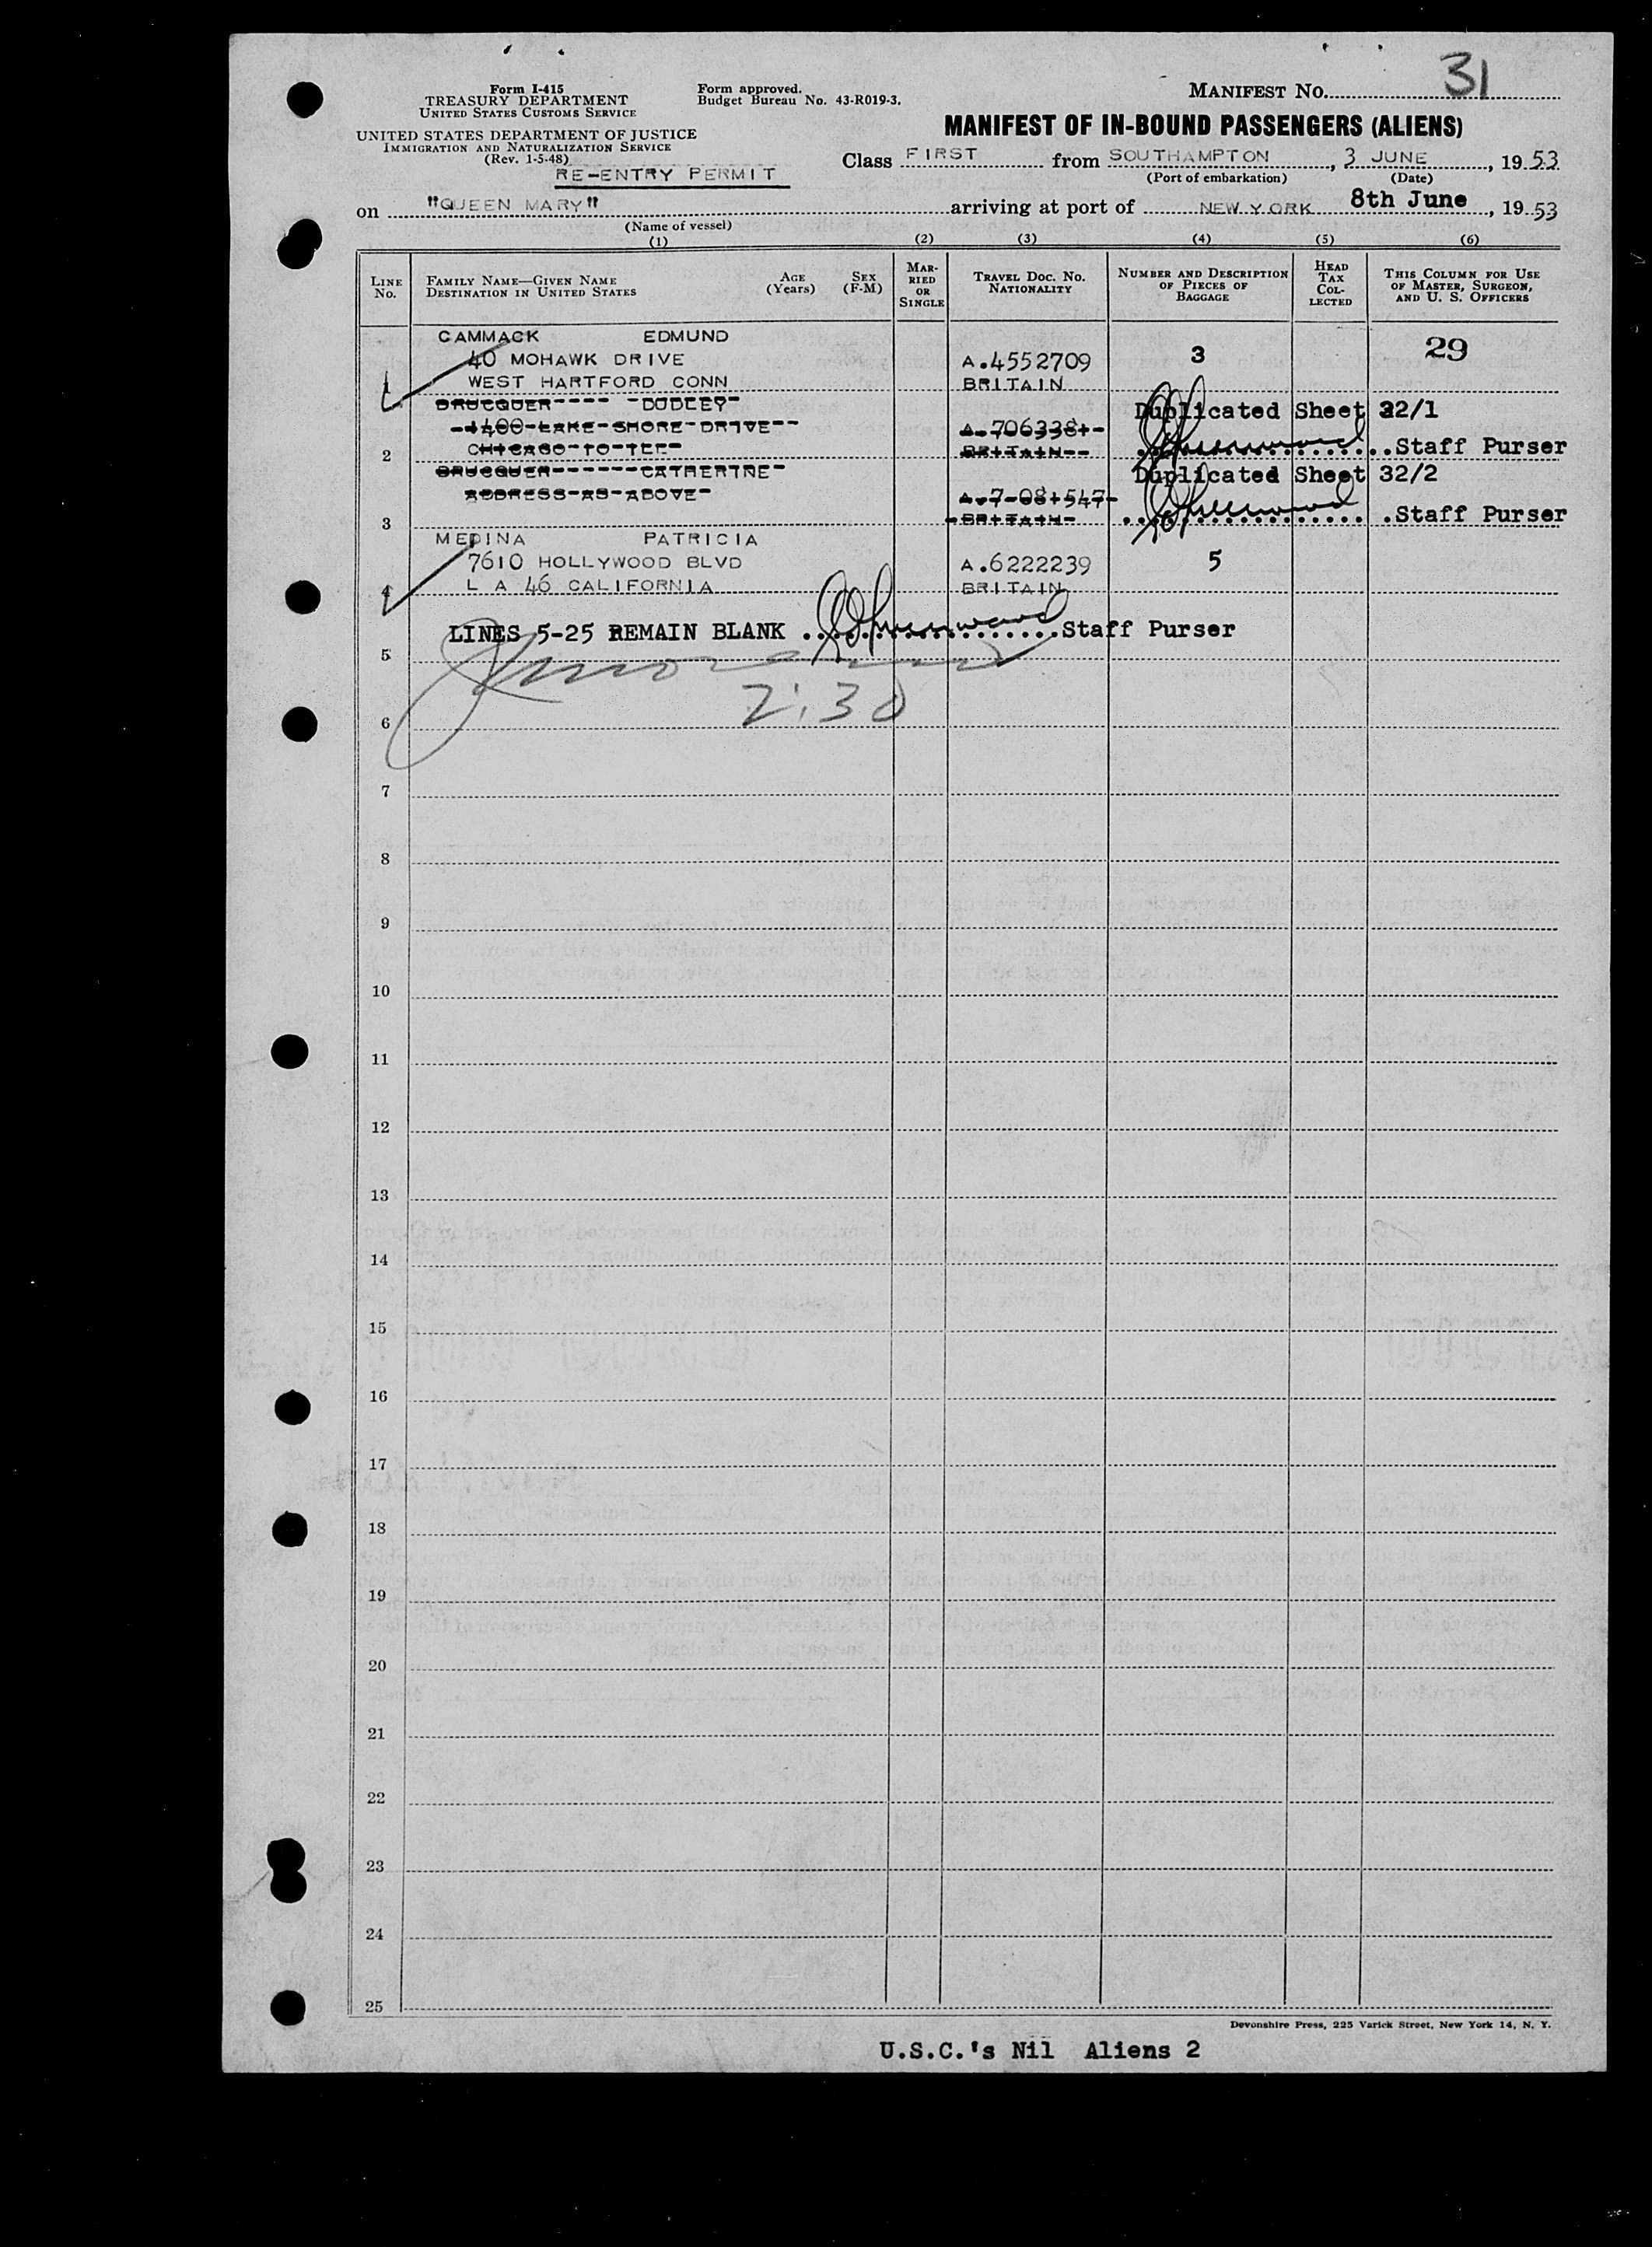 31
Form I-415
TREASURY DEPARTMENT
UNITED STATES CUSTOMS SERVICE
UNITED STATES DEPARTMENT OF JUSTICE
IMMIGRATION AND NATURALIZATION SERVICE
(Rev. 1-5-48)
RE-ENTRY PERMIT
Form approved.
Budget Bureau No. 43-R019-3.
MANIFEST No.
MANIFEST OF IN-BOUND PASSENGERS (ALIENS)
Class FIRST from SOUTHAMPTON, 3 JUNE, 1953
(Port of embarkation) (Date)
on "QUEEN MARY" arriving at port of NEW YORK 8th June, 1953
(Name of vessel)
(1) (2) (3) (4) (5) (6)
LINE No.
FAMILY NAME—GIVEN NAME DESTINATION IN UNITED STATES
AGE (Years)
SEX (F-M)
MARRIED OR SINGLE
TRAVEL DOC. NO. NATIONALITY
NUMBER AND DESCRIPTION OF PIECES OF BAGGAGE
HEAD TAX COLLECTED
THIS COLUMN FOR USE OF MASTER, SURGEON, AND U. S. OFFICERS
CAMMACK EDMUND
40 MOHAWK DRIVE A.4552709 3 29
1 WEST HARTFORD CONN BRITAIN
BRUCQUER DUDLEY Duplicated Sheet 32/1
1400 LAKE SHORE DRIVE
2 CHICAGO BRITAIN Staff Purser
BRUCQUER CATHERINE Duplicated Sheet 32/2
ADDRESS AS ABOVE
3 BRITAIN Staff Purser
MEDINA PATRICIA
7610 HOLLYWOOD BLVD A.6222239 5
4 L A 46 CALIFORNIA BRITAIN
LINES 5-25 REMAIN BLANK Staff Purser
5
2:30
6
7
8
9
10
11
12
13
14
15
16
17
18
19
20
21
22
23
24
25
Devonshire Press, 225 Varick Street, New York 14, N. Y.
U.S.C.'s Nil Aliens 2